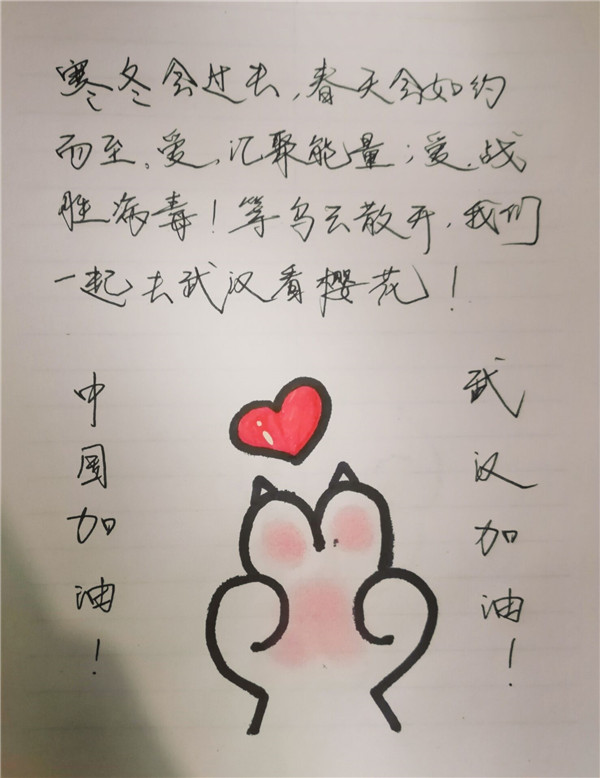 寒冬会过去,春天会如约
而至。爱,汇聚能量;爱,战
胜病毒!等乌云散开,我们
一起去武汉看樱花!
中国加油!
武汉加油!